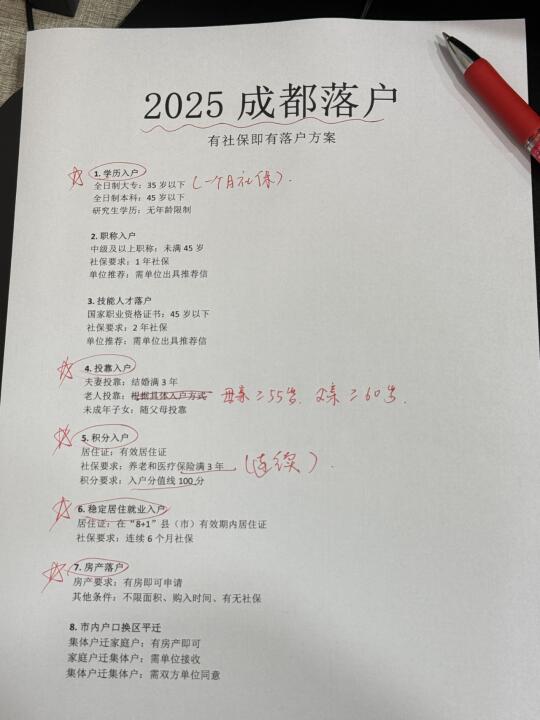 2025 成都落户
有社保即有落户方案
1. 学历入户
全日制大专：35 岁以下 (一个月社保).
全日制本科：45 岁以下
研究生学历：无年龄限制
2. 职称入户
中级及以上职称：未满 45 岁
社保要求：1 年社保
单位推荐：需单位出具推荐信
3. 技能人才落户
国家职业资格证书：45 岁以下
社保要求：2 年社保
单位推荐：需单位出具推荐信
4. 投靠入户
夫妻投靠：结婚满 3 年
老人投靠：根据具体入户方式 母亲≥55岁、父亲≥60岁.
未成年子女：随父母投靠
5. 积分入户
居住证：有效居住证
社保要求：养老和医疗保险满 3 年 (连续)
积分要求：入户分值线 100 分
6. 稳定居住就业入户
居住证：在“8+1”县（市）有效期内居住证
社保要求：连续 6 个月社保
7. 房产落户
房产要求：有房即可申请
其他条件：不限面积、购入时间、有无社保
8. 市内户口换区平迁
集体户迁家庭户：有房产即可
家庭户迁集体户：需单位接收
集体户迁集体户：需双方单位同意